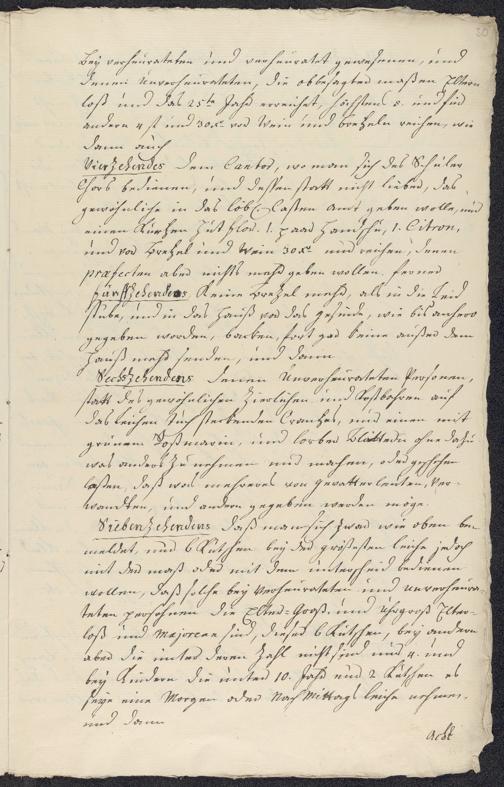 20
bey verheurateten und verheuratet gewesenen, und
denen unverheurateten, die obbesagter maßen Eltern
loß und das 25te Jahr erreichet, höchstens 8. und für
andere 4 fl und 30 xr vor Wein und brezeln reichen, wie
dann auch
Vierzehendes dem Cantor, wo man sich des Schüler
Chors bedienen, und dessen statt nicht lieber, das
gewöhnliche in das lobl. Casten Amt geben wolle, und
einen Kirchen Hut Flor. 1. paar Handschu, 1. Citron,
und vor Brezel und Wein 30 xr und reichen, denen
præfecten aber nichts mehr geben wollen. ferner
fünffzehendens Keine Brezel mehr, als in die Leid
stube, und in das Hauß vor das gesinde, wie bis anhero
gegeben worden, backen, fort gar keine außer dem
Hauß mehr senden, und dann
Sechszehendens denen Unverheurateten Personen,
statt des gewöhnlichen Zierlichen und Kostbahren auf
das leichen Tuch steckenden Cranzes, nur einen mit
grünem Roßmarin, und lorber Blättern ohne darzu
was anders zu nehmen und machen, oder geschehen
laßen, daß was mehreres von gevatterleuten, Ver-
wandten, und andern gegeben werden möge.
Siebenzehendens daß man sich zwar wie oben be-
meldet, nur 6 Kutschen bey der größesten leiche jedoch
mit der maß oder mit dem unterschied bedienen
wollen, daß solche bey Verheurateten und unverheura-
teten persohnen die Elter- Groß- und Uhrgroß Elter-
loß und Majorene sind, dieser 6 Kutschen, bey andern
aber die unter deren Zahl nicht sind nur 4. und
bey Kindern die unter 10. Jahr nur 2 Kutschen es
seye eine Morgen oder Nach Mittags leiche nehmen,
und dann
Acht